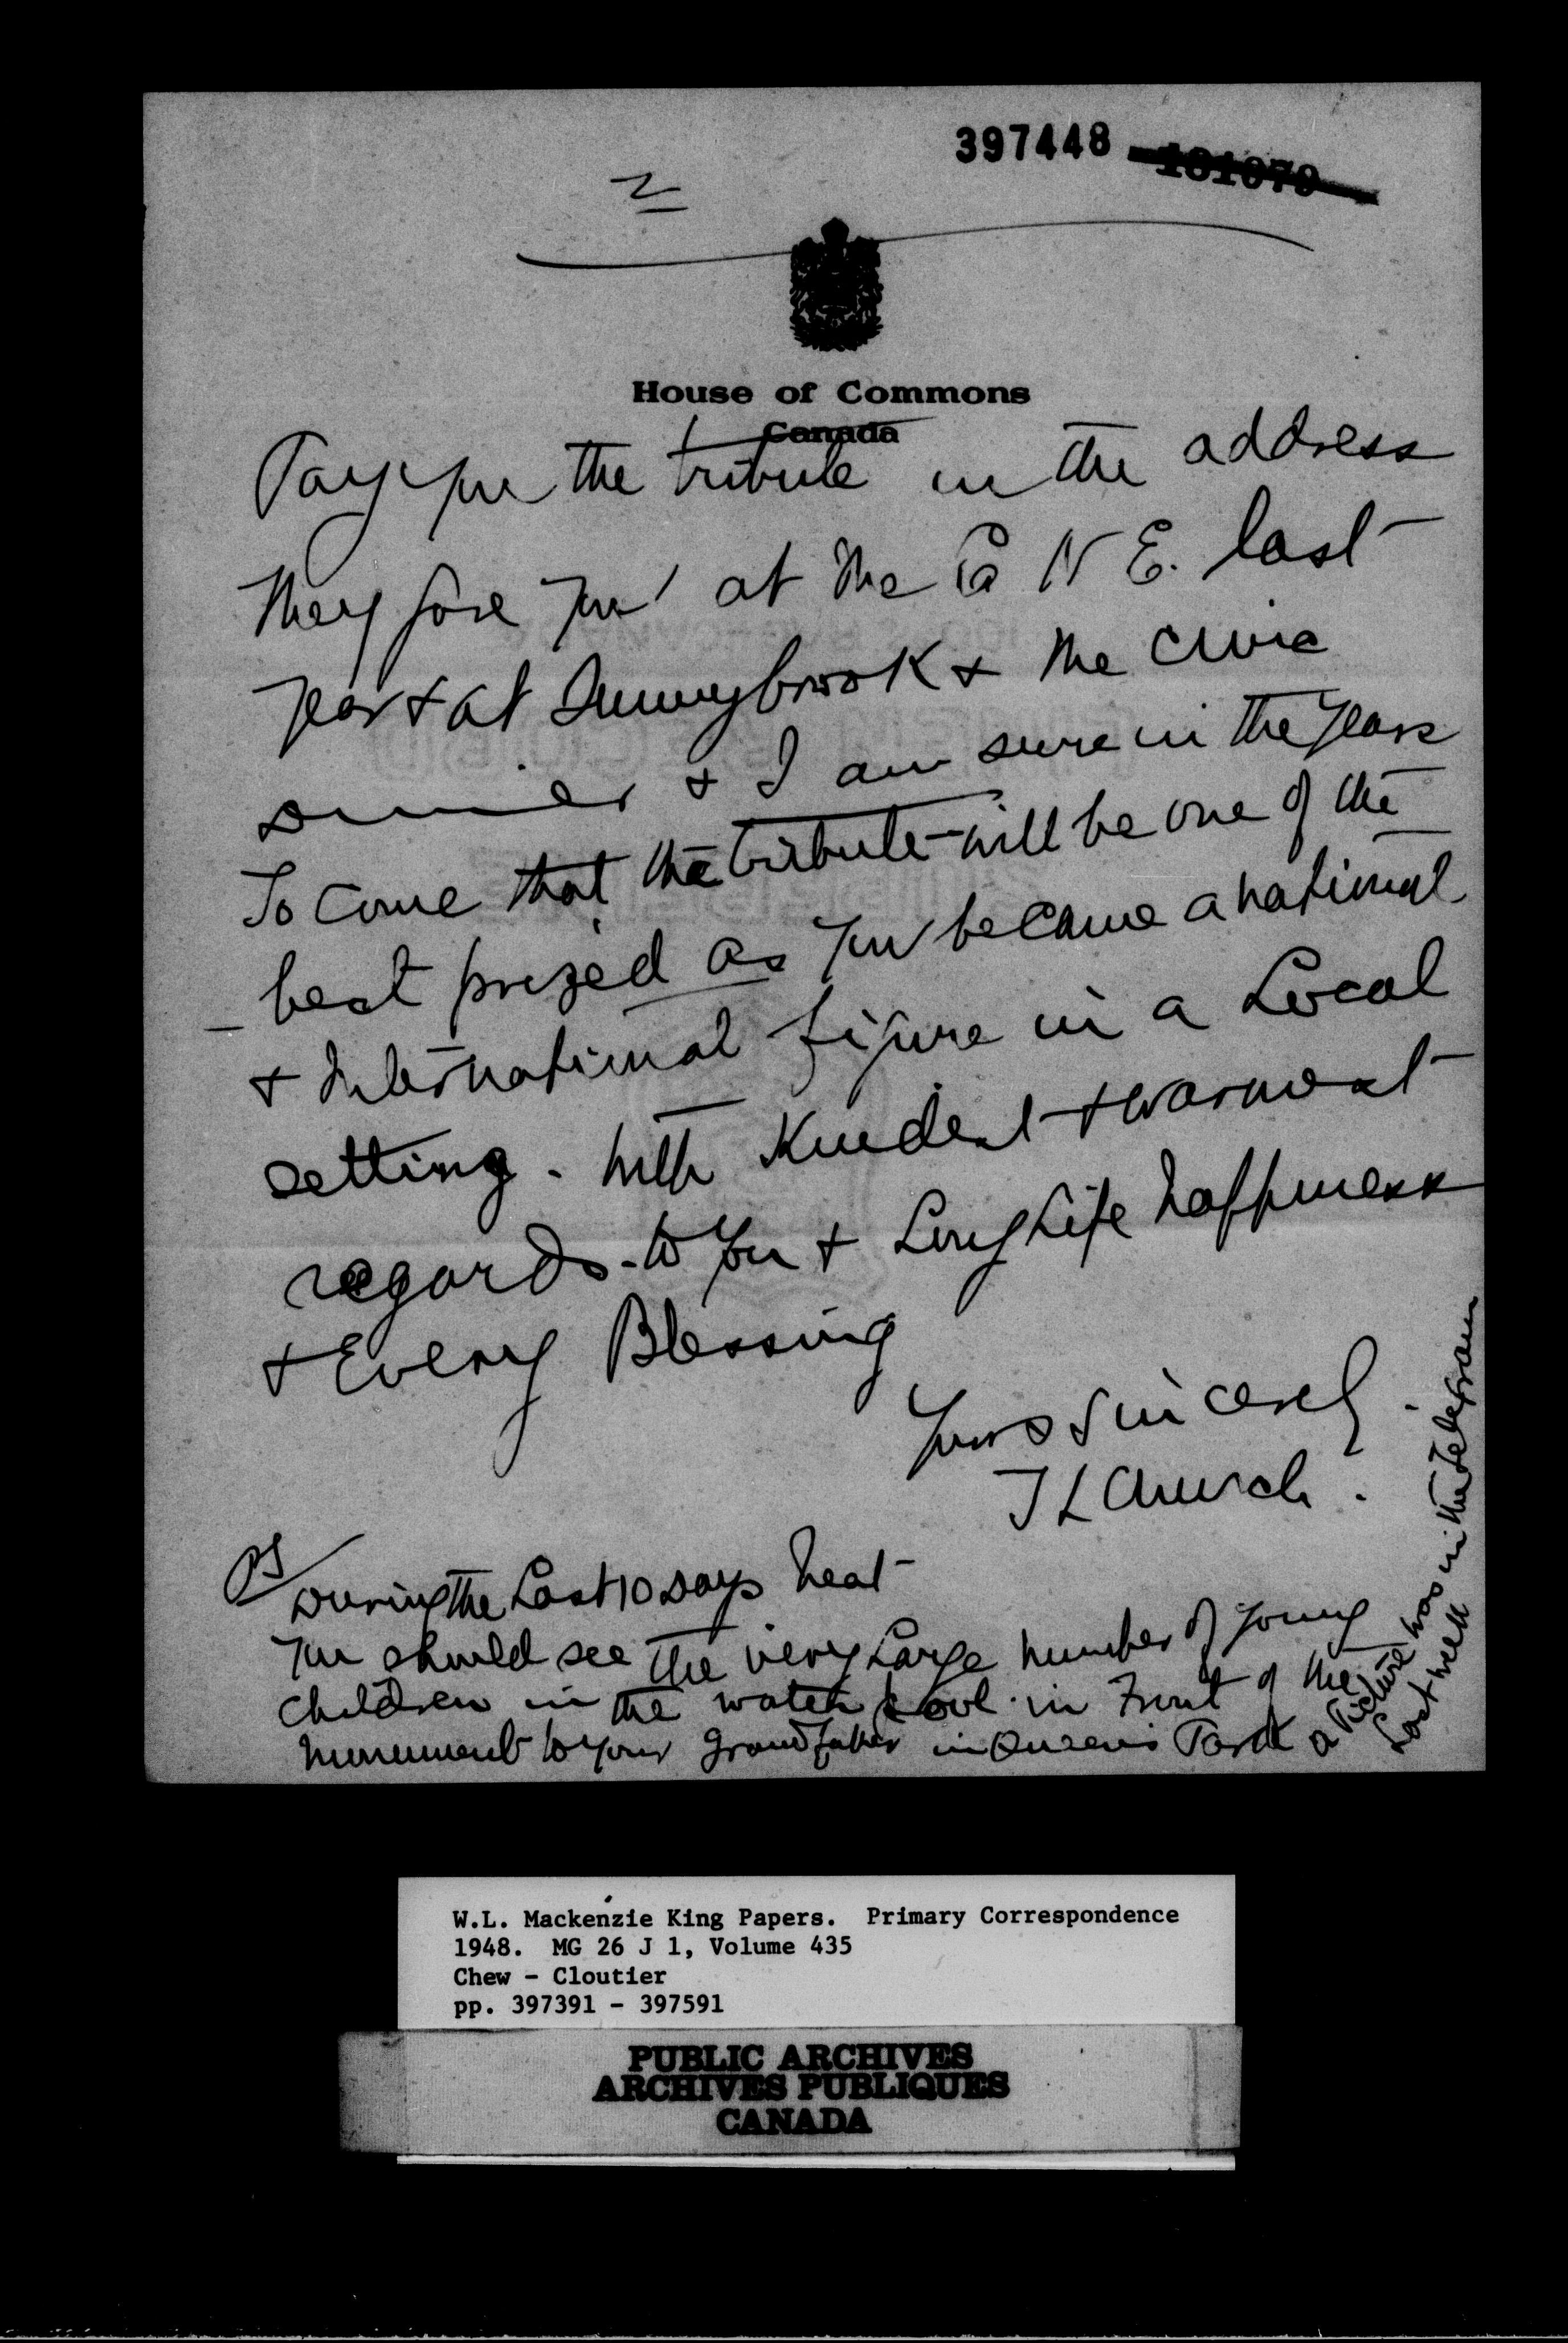 397448 181079
2
House of Commons
Canada
Pay you the tribute in the address
they gave you at the C N E. last
year & at Sunnybrook & the Civic
Dinner & I am sure in the years
To come that the tribute will be one of the
best prized as you became a national
& International figure in a Local
setting. With Kindest & warmest
regards to you & Long Life happiness
& Every Blessing
Yours Sincerely
T L Church.
PS
During the Last 10 Days heat
You should see the very Large number of young
children in the water pool in Front of the
monument to your grandfather in Queens Park a Picture was in the Telegram
Last week
W.L. Mackenzie King Papers. Primary Correspondence
1948. MG 26 J 1, Volume 435
Chew - Cloutier
pp. 397391 - 397591
PUBLIC ARCHIVES
ARCHIVES PUBLIQUES
CANADA